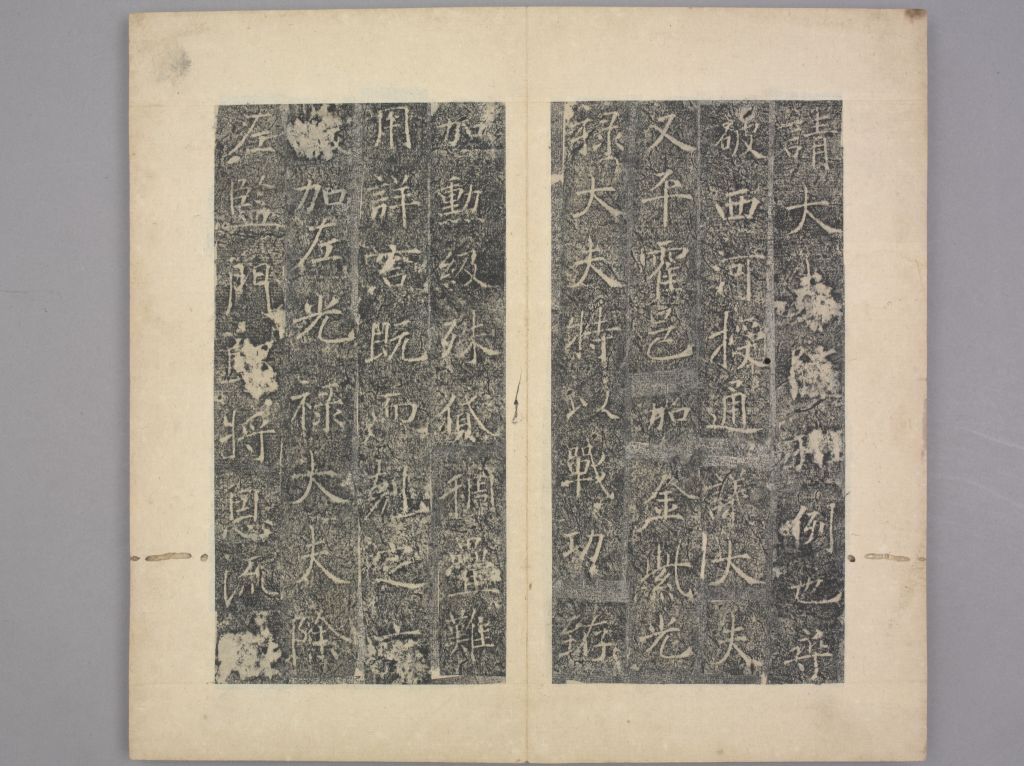 請大例也尋
破西河授通議大夫
又平霍邑加金紫光
祿大夫特以戰功荐
加勳級殊稠疊難
用詳言既而剋定京
加左光祿大夫除
左監門郎將恩流